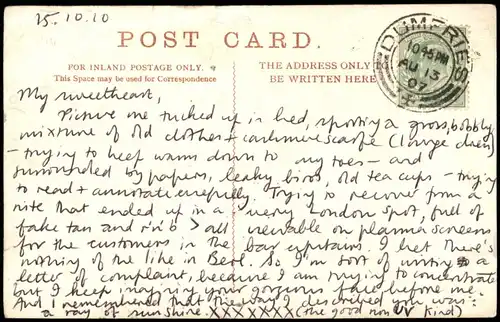 15.10.10
POST CARD.
FOR INLAND POSTAGE ONLY.
This Space may be used for Correspondence
THE ADDRESS ONLY TO
BE WRITTEN HERE
DUMFRIES
10 45 PM
AU 13
07
My sweetheart,
Picture me tucked up in bed, sporting a gross, bobbly
mixture of old clothes + cashmere scarfe (lounge
– trying to keep warm down to my toes – and
surrounded by papers, leaky biros, old tea cups – trying
to read + annotate carefully. Trying to recover from a
nite that ended up in a very London spot, full of
fake tan and r'n'b > all viewable on plasma screens
for the customers in the bar upstairs. I bet there's
nothing of the like in Berl. So I'm sort of writing a
letter of complaint, because I am trying to concentrate
but I keep inagining your gorgeous face before me.
And I remembered that the way I described you was:
a ray of sunshire. XXXXXXX (the good non UV kind)